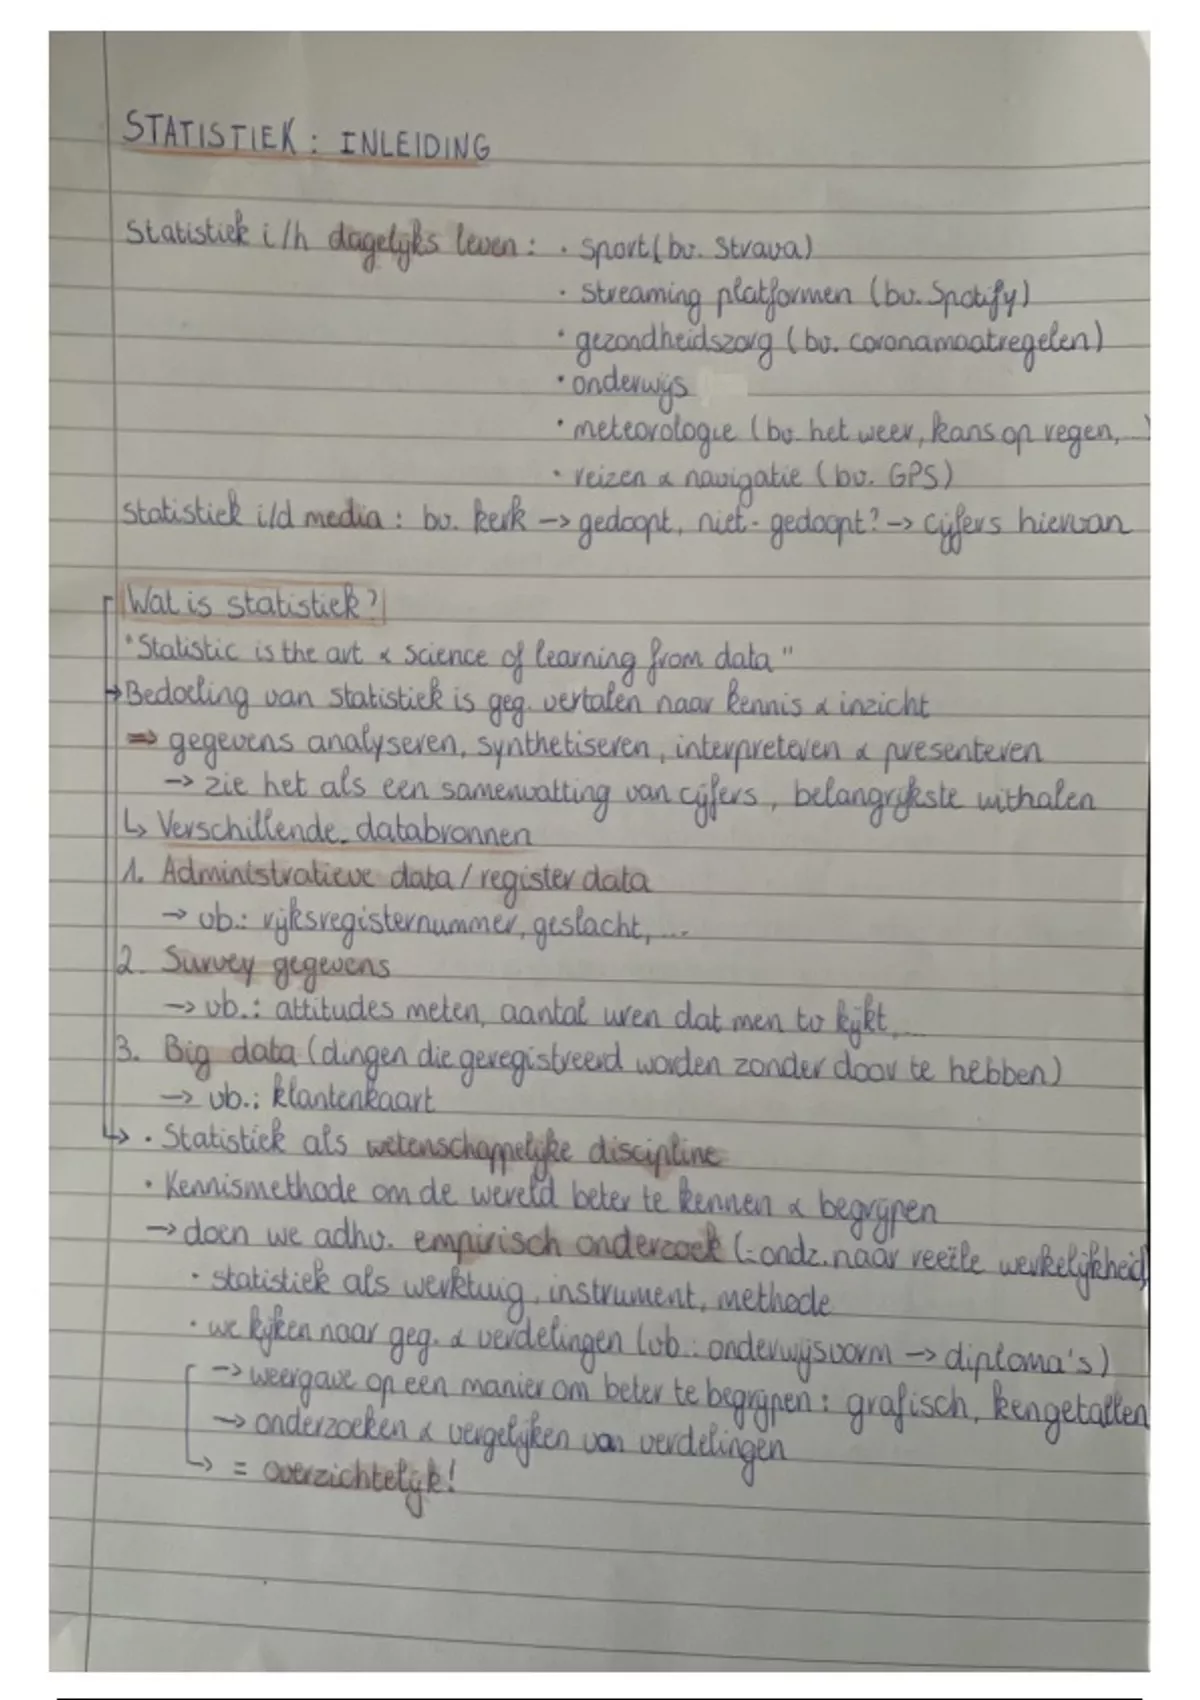 STATISTIEK : INLEIDING
Statistiek i/h dagelijks leven : · Sport (bv. Strava)
· Streaming platformen (bv. Spotify)
· gezondheidszorg (bv. coronamaatregelen)
· onderwijs
· meteorologie (bv. het weer, kans op regen, ...)
· reizen & navigatie (bv. GPS)
Statistiek i/d media : bv. kerk -> gedoopt, niet-gedoopt? -> cijfers hiervan
Wat is statistiek?
"Statistic is the art & science of learning from data"
→ Bedoeling van statistiek is geg. vertalen naar kennis & inzicht
⇒ gegevens analyseren, synthetiseren, interpreteren & presenteren
-> zie het als een samenvatting van cijfers, belangrijkste uithalen
↳ Verschillende databronnen
1. Administratieve data / register data
→ vb.: rijksregisternummer, geslacht, ...
2. Survey gegevens
-> vb.: attitudes meten, aantal uren dat men tv kijkt, ...
3. Big data (dingen die geregistreerd worden zonder door te hebben)
-> vb.: klantenkaart
↳ · Statistiek als wetenschappelijke discipline
· Kennismethode om de wereld beter te kennen & begrijpen
-> doen we adhv. empirisch onderzoek (= ondz. naar reeële werkelijkheid)
· statistiek als werktuig, instrument, methode
· we kijken naar geg. & verdelingen (vb.: onderwijsvorm -> diploma's)
-> weergave op een manier om beter te begrijpen : grafisch, kengetallen
-> onderzoeken & vergelijken van verdelingen
↳ = overzichtelijk!